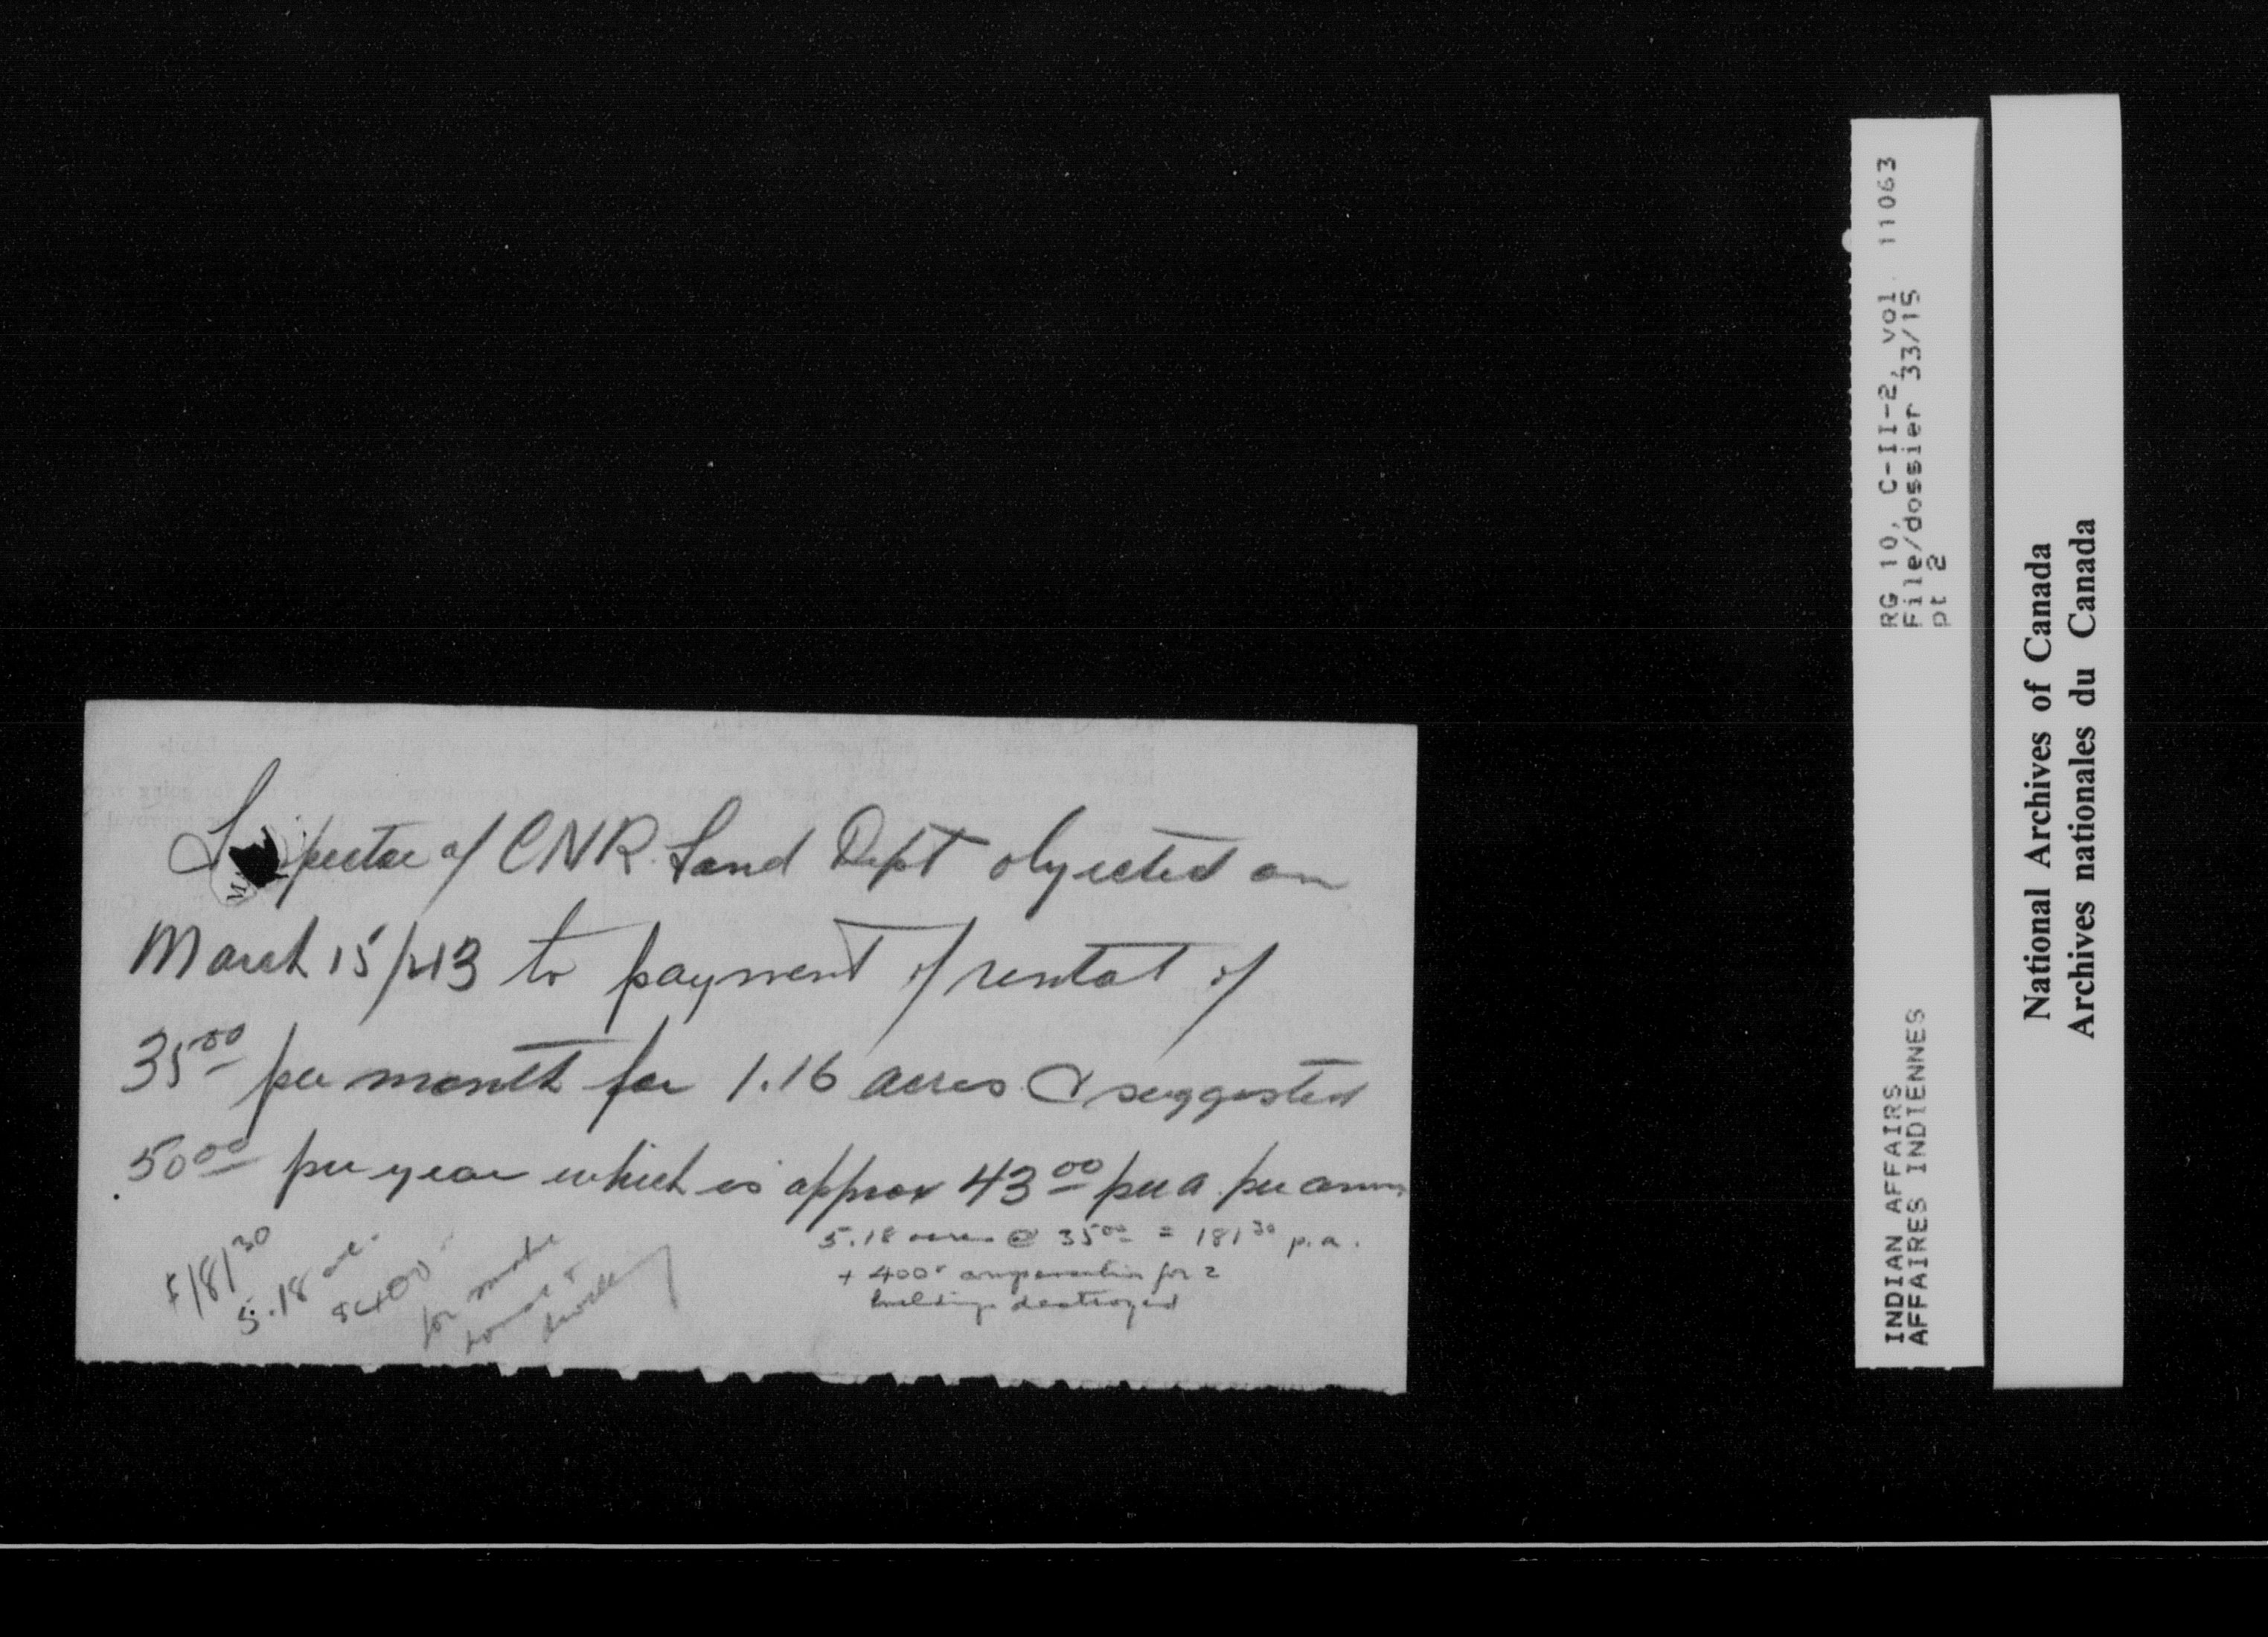 Inspector of CNR Land Dept objected on
March 15/43 to payment of rental of
35.00 per month for 1.16 acres & suggested
50.00 per year which is approx 43.00 per a. per annum
5.18 acres @ 35.00 = 181.30 p.a.
+ 400 compensation for 2
buildings destroyed
$181.30
5.18 ac.
$400
for
RG 10, C-II-2, vol 11063
File/dossier 33/15
pt 2
INDIAN AFFAIRS
AFFAIRES INDIENNES
National Archives of Canada
Archives nationales du Canada